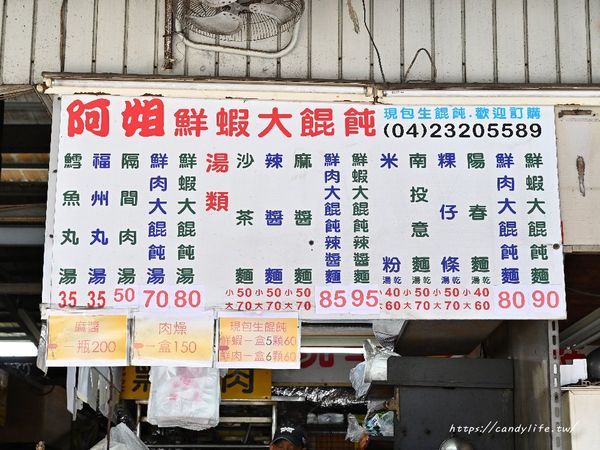 阿姐鮮蝦大餛飩
現包生餛飩.歡迎訂購
(04)23205589
鮮蝦大餛飩麵 90
鮮肉大餛飩麵 80
陽春麵 湯乾 小40 大60
粿仔條 湯乾 小50 大70
南投意麵 湯乾 小50 大70
米粉 湯乾 小40 大60
鮮蝦大餛飩辣醬麵 95
鮮肉大餛飩辣醬麵 85
麻醬麵 小50 大70
辣醬麵 小50 大70
沙茶麵 小50 大70
湯類
鮮蝦大餛飩湯 80
鮮肉大餛飩湯 70
隔間肉湯 50
福州丸湯 35
鱈魚丸湯 35
麻醬
一瓶200
肉燥
一盒150
現包生餛飩
鮮蝦一盒5顆60
鮮肉一盒6顆60
肉
https://candylife.tw/